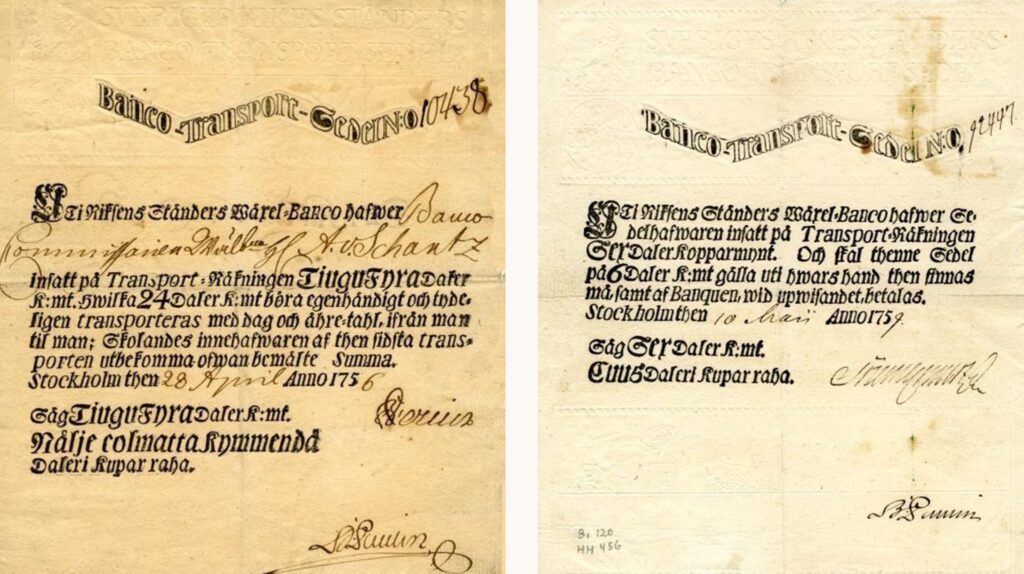 SVERIGES RIKES STÄNDERS
BANCO TRANSPORT SEDEL
Banco-Transport-Sedel N:o 10438
Uti Riksens Ständers Wäxel-Banco hafwer Banco
Commissarien Wälb A. v Schantz
insatt på Transport-Räkningen TiuguFyra Daler
K:mt. hwilka 24 Daler K:mt böra egenhändigt och tyde-
ligen transporteras med dag och åhre-tahl, ifrån man
til man; Skolandes innehafwaren af then sidsta trans-
porten utbekomma ofwan bemälte Summa.
Stockholm then 28 April Anno 1756
Säg TiuguFyra Daler K:mt.
Näljä colmatta Kymmendä
Daleri Kupar raha.
SVERIGES RIKES STÄNDERS
Banco-Transport-Sedel N:o, 92447.
Uti Riksens Ständers Wäxel-Banco hafwer Se-
delhafwaren insatt på Transport-Räkningen
Sex Daler Kopparmynt. Och skal thenne Sedel
på 6 Daler K:mt gälla uti hwars hand then finnas
må, samt af Banquen, wid upwisandet, betalas.
Stockholm then 10 Maii Anno 1759.
Säg Sex Daler K:mt.
Cuus Daleri Kupar raha.
B: 120
HH 456